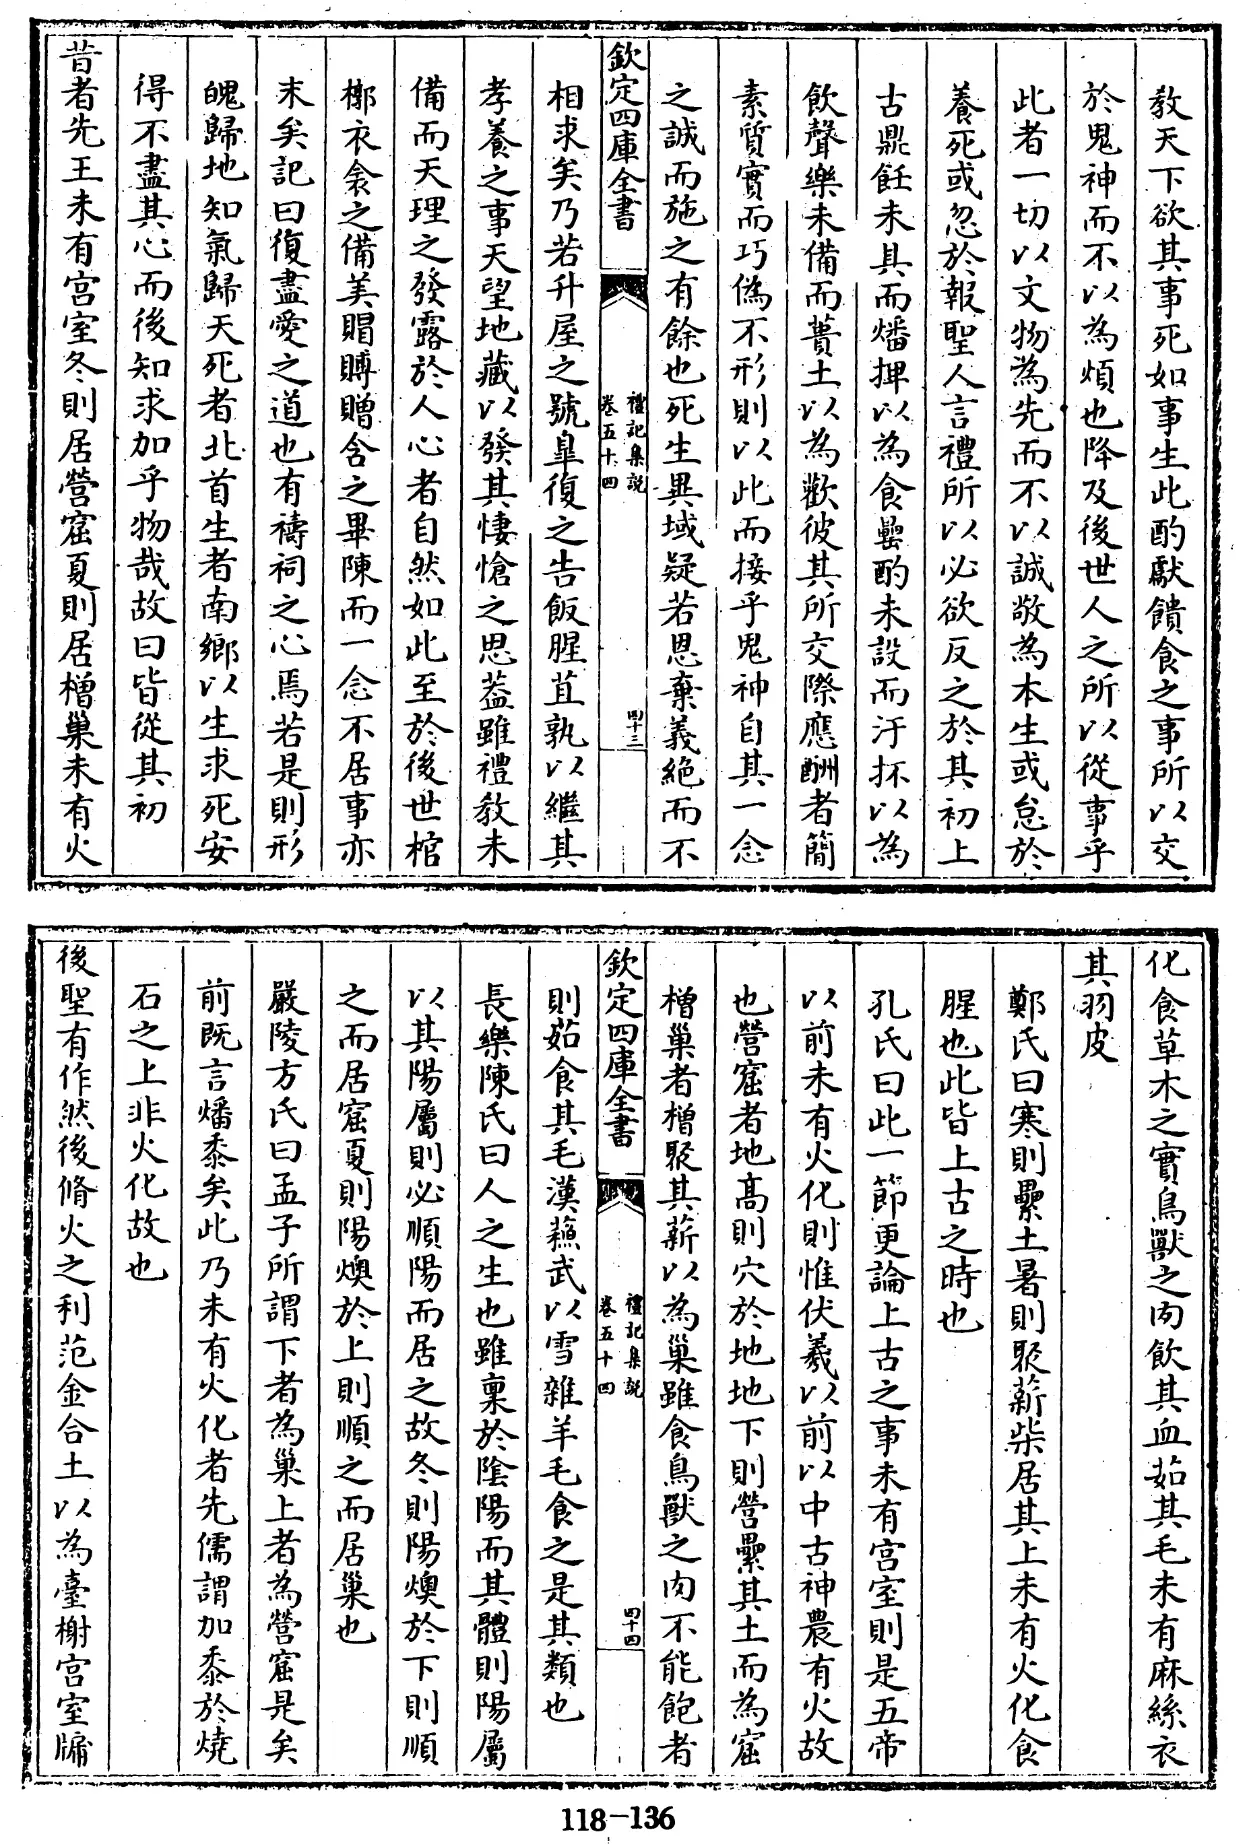 教天下欲其事死如事生此酌獻饋食之事所以交
於鬼神而不以為煩也降及後世人之所以從事乎
此者一切以文物為先而不以誠敬為本生或怠於
養死或忽於報聖人言禮所以必欲反之於其初上
古鼎飪未具而燔捭以為食罍酌未設而汙抔以為
飲聲樂未備而蕢土以為歡彼其所交際應酬者簡
素質實而巧偽不形則以此而接乎鬼神自其一念
之誠而施之有餘也死生異域疑若恩棄義絶而不
欽定四庫全書
禮記集説
卷五十四
四十三
相求矣乃若升屋之號臯復之告飯腥苴孰以繼其
孝養之事天望地藏以發其悽愴之思蓋雖禮教未
備而天理之發露於人心者自然如此至於後世棺
槨衣衾之備美賵賻贈含之畢陳而一念不居事亦
末矣記曰復盡愛之道也有禱祠之心焉若是則形
魄歸地知氣歸天死者北首生者南鄉以生求死安
得不盡其心而後知求加乎物哉故曰皆從其初
昔者先王未有宫室冬則居營窟夏則居橧巢未有火
化食草木之實鳥獸之肉飲其血茹其毛未有麻絲衣
其羽皮
鄭氏曰寒則纍土暑則聚薪柴居其上未有火化食
腥也此皆上古之時也
孔氏曰此一節更論上古之事未有宫室則是五帝
以前未有火化則惟伏羲以前以中古神農有火故
也營窟者地髙則穴於地地下則營纍其土而為窟
橧巢者橧聚其薪以為巢雖食鳥獸之肉不能飽者
欽定四庫全書
禮記集説
卷五十四
四十四
則茹食其毛漢蘓武以雪雜羊毛食之是其類也
長樂陳氏曰人之生也雖稟於陰陽而其體則陽屬
以其陽屬則必順陽而居之故冬則陽燠於下則順
之而居窟夏則陽燠於上則順之而居巢也
嚴陵方氏曰孟子所謂下者為巢上者為營窟是矣
前既言燔黍矣此乃未有火化者先儒謂加黍於燒
石之上非火化故也
後聖有作然後脩火之利范金合土以為臺榭宫室牖
118-136